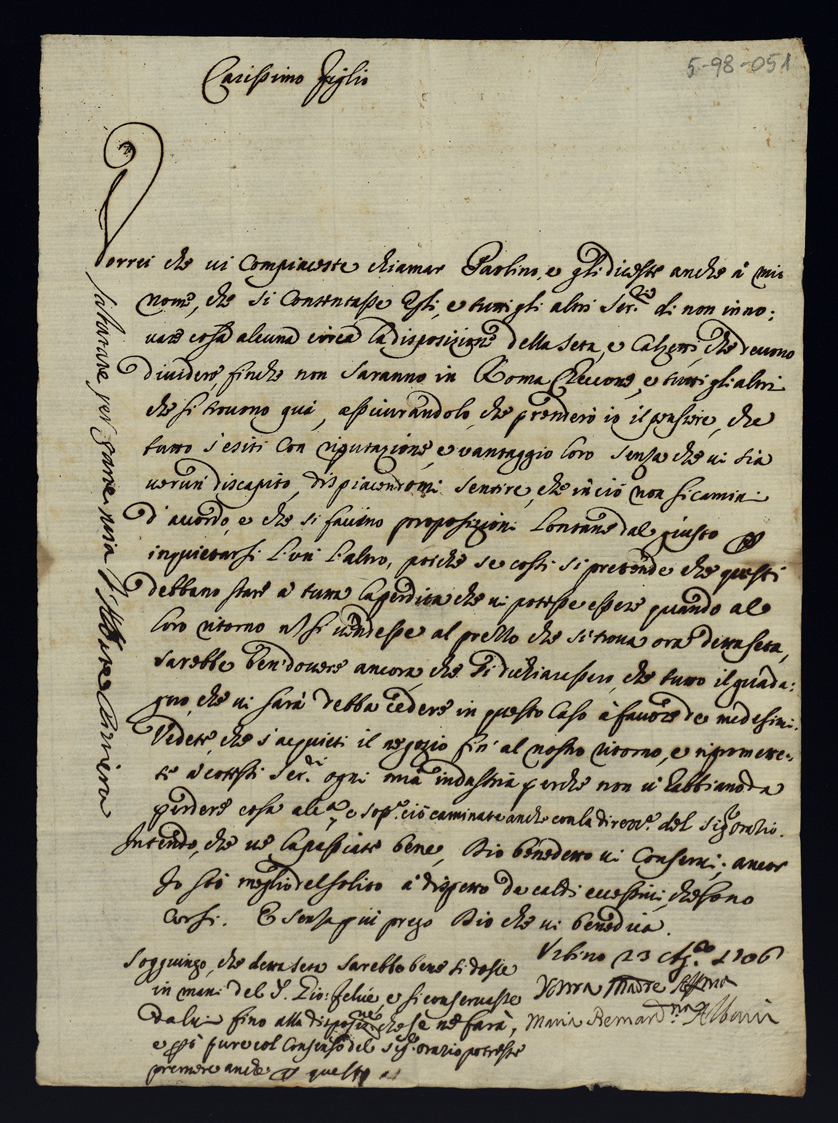 5-98-051
Carissimo figlio
Vorrei che vi Compiaceste chiamar Paolino, e gli diceste anche à mio
nome, che si Contentasse Egli, e tutti gli altri Ser.ri di non inno:
vare cosa alcuna circa la disposizione della seta, e Calzetti, che devono
dividere, finche non saranno in Roma Checcone, e tutti gli altri
che si trovono quà, assicurandolo, che prenderò io il pensiere, che
tutto s'esiti con riputazione, e vantaggio loro senza che vi sia
verun' discapito, dispiacendomi sentire, che in ciò non si camini
d'accordo, e che si faccino proposizioni lontane dal giusto
inquietarsi l'uni l'altro, poiche se costi si pretende che questi
debbano stare a tutta la perdita che vi potesse essere quando al
loro ritorno si vendesse al prezzo che si trova ora detta seta,
sarebbe ben dovere ancora, che si dichiarassero, che tutto il guada:
gno, che vi sarà debba cedere in questo caso à favore de medesimi.
Vedete, che s'acquieti il negozio fin' al nostro ritorno, e ripromette:
te à cotesti Ser.ri ogni mia industria perche non vi habbiano da
perdere cosa alc.a, e sop.a ciò caminate anche con la direz.e del Sig.r Orazio.
Intendo, che ve la passiate bene, Dio benedetto vi Conservi; ancor
Io stò meglio del solito à dispetto de caldi eccessivi, che sono
corsi. E senza più prego Dio che vi benedica.
Urbino 23 Ag.to 1706
Vostra Madre Aff.ma
Maria Bernard.na Albani
Soggiungo, che detta seta sarebbe bene si desse
in mani del S. Pio: Felice, e si conservasse
da lui fino alla disposiz.ne che se ne farà,
e però pure col Consenso del Sig.r Orazio potreste
premere anche questo
salutare per parte mia